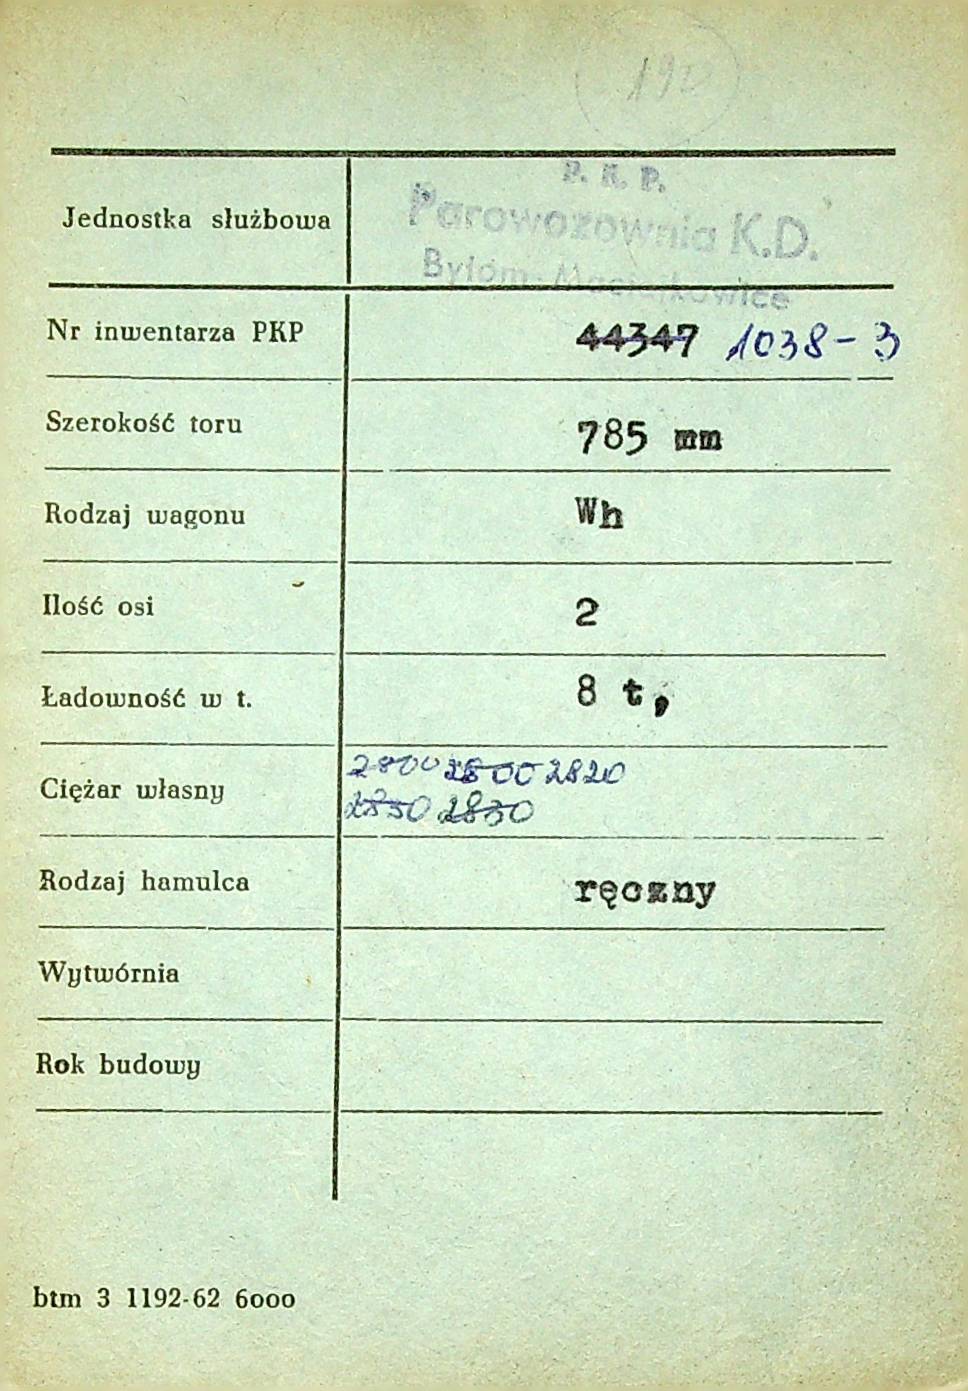 190
P. K. P.
Jednostka służbowa Parowozownia K.D.
Bytom-Maciejkowice
Nr inwentarza PKP 44347 1038-3
Szerokość toru 785 mm
Rodzaj wagonu Wh
Ilość osi 2
Ładowność w t. 8 t,
Ciężar własny 2800 2800 2820
2850 2830
Rodzaj hamulca ręczny
Wytwórnia
Rok budowy
btm 3 1192-62 6000